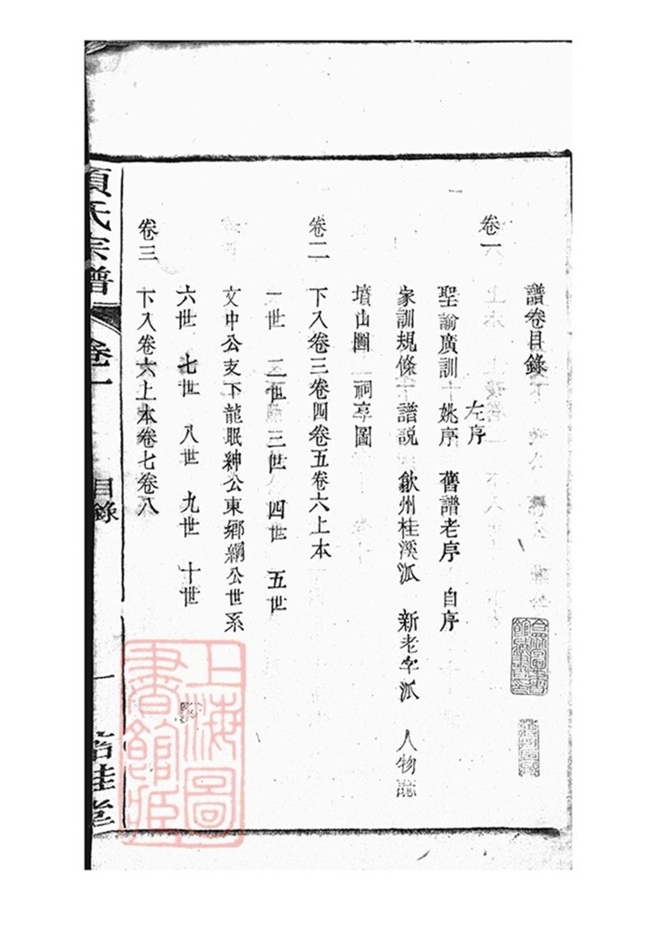 譜卷目錄
卷一
左序
聖諭廣訓 姚序 舊譜老序 自序
家訓規條 譜説 歙州桂溪派 新老牟派 人物誌
墳山圖 祠享圖
卷二 下入卷三卷四卷五卷六上本
一世 二世 三世 四世 五世
文中公支下龍眠紳公東鄉綱公世系
六世 七世 八世 九世 十世
卷三 下入卷六上本卷七卷八
項氏宗譜 卷一 目錄 一
上海圖書館